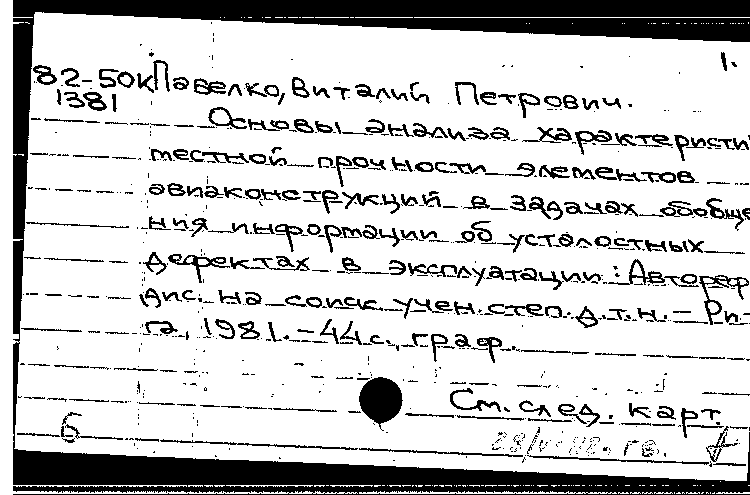 1.
82-50к Павелко, Виталий Петрович.
1381
Основы анализа характеристи
местной прочности элементов
авиаконструкций в задачах обобще
ния информации об усталостных
дефектах в эксплуатации: Автореф
дис. на соиск. учен. степ. д.т.н. – Ри-
га, 1981. – 44 с., граф.
См. след. карт.
6